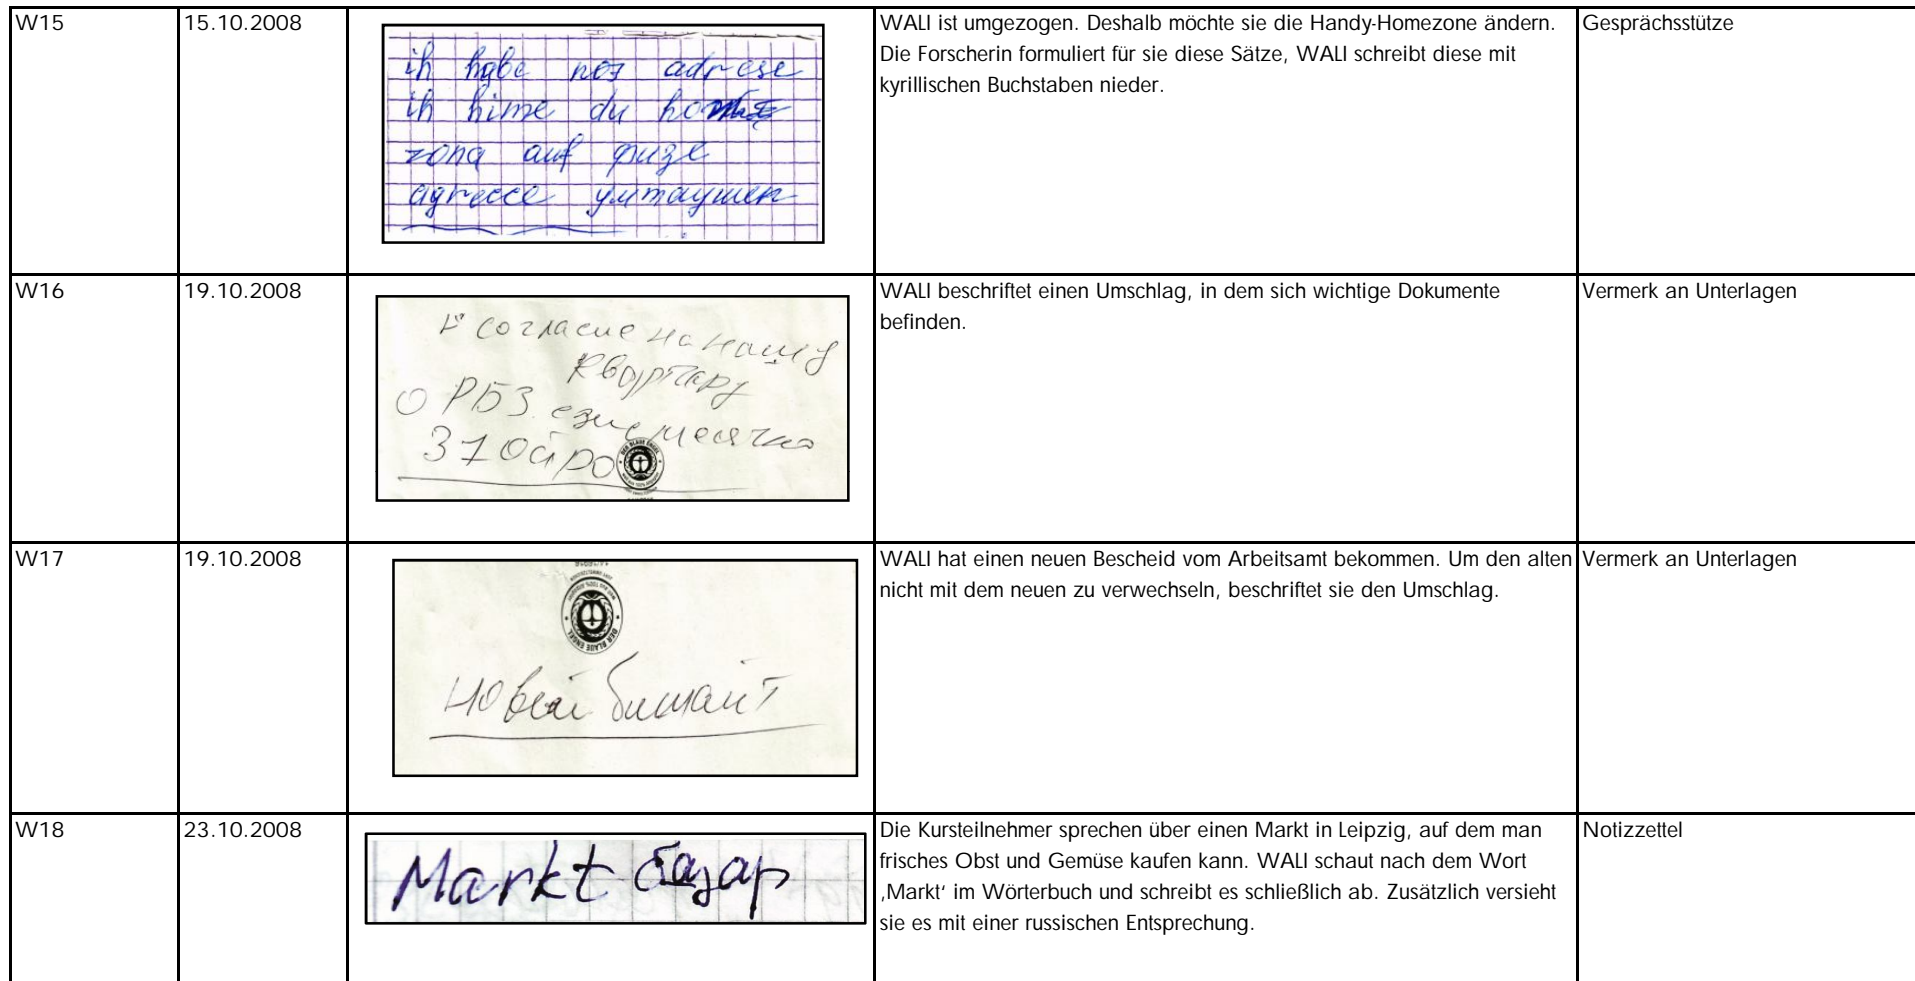 W15
15.10.2008
ih habe noz adrese
ih hime du
zona auf физе
agrecce умтаушен
WALI ist umgezogen. Deshalb möchte sie die Handy-Homezone ändern.
Die Forscherin formuliert für sie diese Sätze, WALI schreibt diese mit
kyrillischen Buchstaben nieder.
Gesprächsstütze
W16
19.10.2008
согласие на нашу
квартиру
О РБЗ
310 йро
DER BLAUE ENGEL
WALI beschriftet einen Umschlag, in dem sich wichtige Dokumente
befinden.
Vermerk an Unterlagen
W17
19.10.2008
DER BLAUE ENGEL
новей бишайт
WALI hat einen neuen Bescheid vom Arbeitsamt bekommen. Um den alten
nicht mit dem neuen zu verwechseln, beschriftet sie den Umschlag.
Vermerk an Unterlagen
W18
23.10.2008
Markt базар
Die Kursteilnehmer sprechen über einen Markt in Leipzig, auf dem man
frisches Obst und Gemüse kaufen kann. WALI schaut nach dem Wort
‚Markt‘ im Wörterbuch und schreibt es schließlich ab. Zusätzlich versieht
sie es mit einer russischen Entsprechung.
Notizzettel